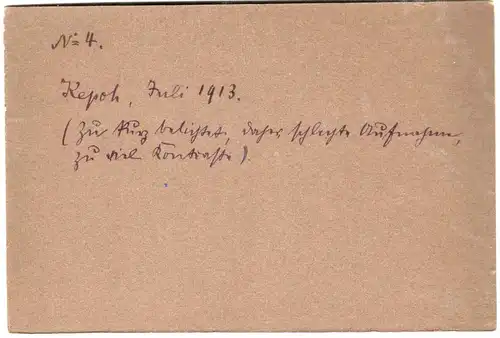 No 4.
Kepoh, Juli 1913.
(Zu kurz belichtet, daher schlechte Aufnahme,
zu viel Kontraste).